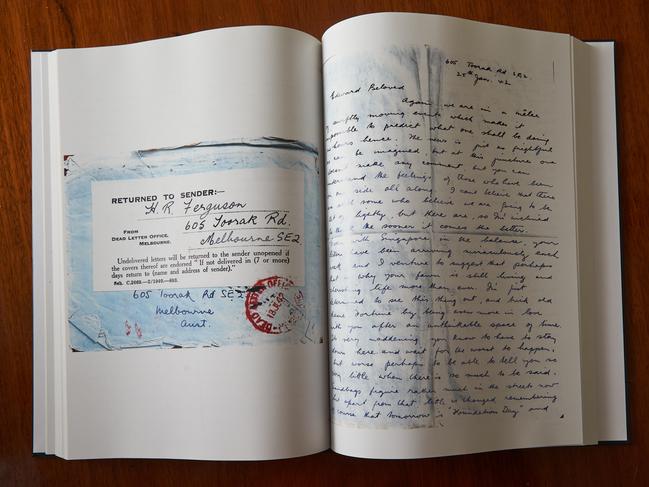 RETURNED TO SENDER:—
H. R. Ferguson
FROM
DEAD LETTER OFFICE,
MELBOURNE.
605 Toorak Rd.
Melbourne SE2
Undelivered letters will be returned to the sender unopened if
the covers thereof are endorsed "If not delivered in (7 or more)
days return to (name and address of sender)."
605 Toorak Rd SE2
Melbourne
Aust.
DEAD LETTER OFFICE
605 Toorak Rd SE2.
25th Jan. 42
Edward Beloved
Again we are in a
swiftly moving events which made it
impossible to predict what one shall be doing
hours hence. The news is just as frightful
as can be imagined but at this juncture one
doesn't make any comment but you can
understand the feelings of those who have been
on side all along. I can't believe that there
are still some who believe we are going to be
let off lightly, but there are, so I'm inclined
to the sooner it comes the better.
Even with Singapore in the balance, your
letters have been arriving miraculously each
week and I venture to suggest that perhaps
that's why your fawn is still living and
loving life more than ever. I'm just
determined to see this thing out, and trick old
dame Fortune by being even more in love
with you after an unthinkable space of time.
It's very maddening you know to have to stay
down here and wait for the worst to happen,
but worse perhaps to be able to tell you so
very little when there is so much to be said.
Sandbags figure rather much in the streets now
but apart from that, little is changed remembering
of course that tomorrow is "Foundation Day" and